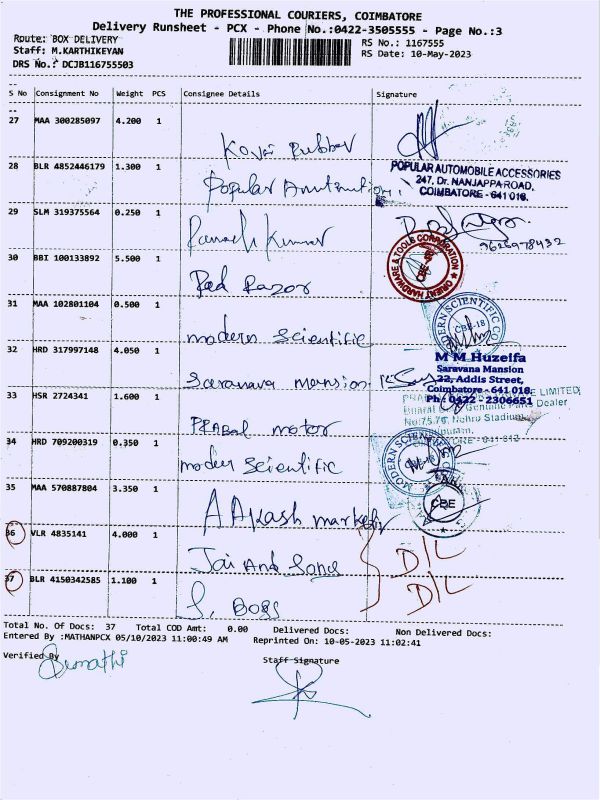 THE PROFESSIONAL COURIERS, COIMBATORE
Delivery Runsheet - PCX - Phone No.:0422-3505555 - Page No.:3
Route: BOX DELIVERY
Staff: M.KARTHIKEYAN
DRS No.: DCJB116755503
RS No.: 1167555
RS Date: 10-May-2023
S No Consignment No Weight PCS Consignee Details Signature
27 MAA 300285097 4.200 1
Kovai Rubber
28 BLR 4852446179 1.300 1
Popular
POPULAR AUTOMOBILE ACCESSORIES
247, Dr. NANJAPPA ROAD,
COIMBATORE - 641 018.
29 SLM 319375564 0.250 1
Ramesh Kumar
9626978432
30 BBI 100133892 5.500 1
Red Razor
ORIENT HARDWARE & TOOLS CORPORATION
CBE-18
31 MAA 102801104 0.500 1
modern Scientific
MODERN SCIENTIFIC CO.
CBE-18
32 HRD 317997148 4.050 1
Saranava mension
M M Huzeifa
Saravana Mansion
22, Addis Street,
Coimbatore - 641 018.
Ph : 0422 - 2306651
33 HSR 2724341 1.600 1
PRABAL motor
LIMITED
Genuine Parts Dealer
No:75,76, Nehru Stadium
34 HRD 709200319 0.350 1
modern Scientific
MODERN SCIENTIFIC
35 MAA 570887804 3.350 1
A Akash market
CBE
36 VLR 4835141 4.000 1
Jai And Sons
D/L
37 BLR 4150342585 1.100 1
S. Boss
D/L
Total No. Of Docs: 37 Total COD Amt: 0.00 Delivered Docs: Non Delivered Docs:
Entered By :MATHANPCX 05/10/2023 11:00:49 AM Reprinted On: 10-05-2023 11:02:41
Verified By
Staff Signature